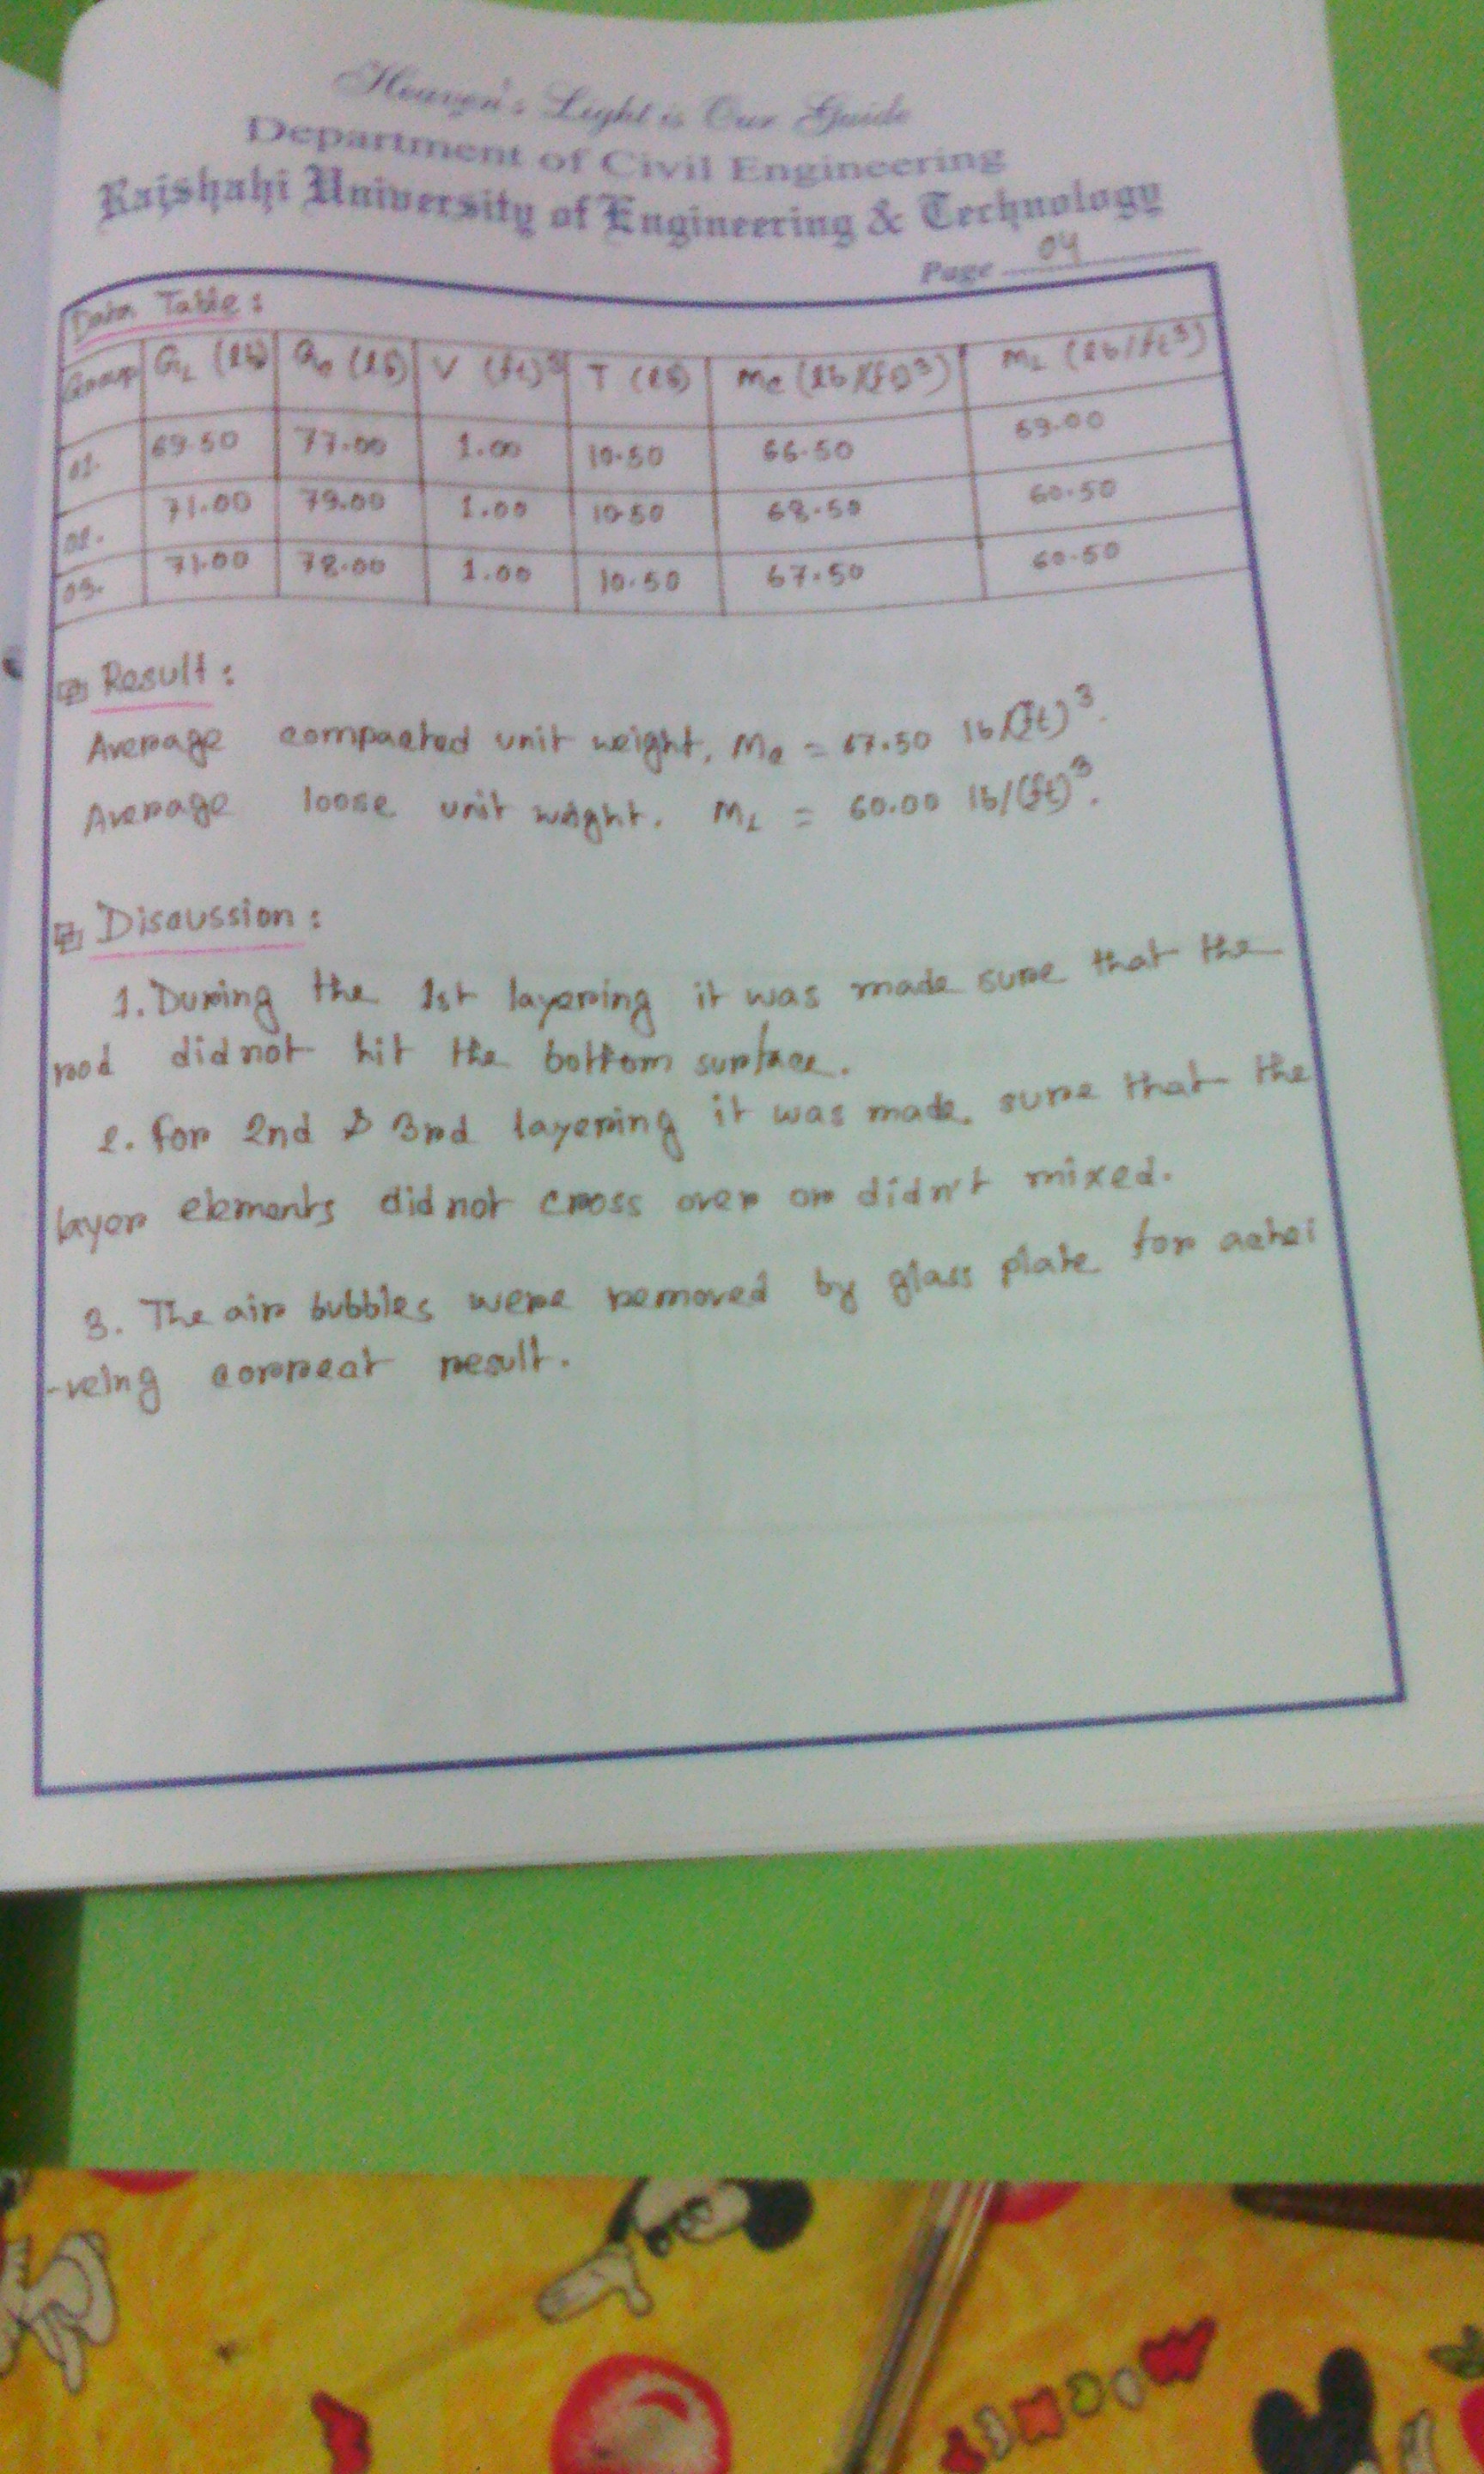 Heaven's Light is Our Guide
Department of Civil Engineering
Rajshahi University of Engineering & Technology
Page 04
Data Table:
Group G_L (lb) G_c (lb) V (ft)^3 T (lb) M_c (lb/(ft)^3) M_L (lb/ft^3)
01. 69.50 77.00 1.00 10.50 66.50 59.00
02. 71.00 79.00 1.00 10.50 68.50 60.50
03. 71.00 78.00 1.00 10.50 67.50 60.50
Result:
Average compacted unit weight, M_c = 67.50 lb/(ft)^3.
Average loose unit weight. M_L = 60.00 lb/(ft)^3.
Discussion:
1. During the 1st layering it was made sure that the
rod did not hit the bottom surface.
2. For 2nd & 3rd layering it was made sure that the
layer elements did not cross over or didn't mixed.
3. The air bubbles were removed by glass plate for achei
-veing correct result.